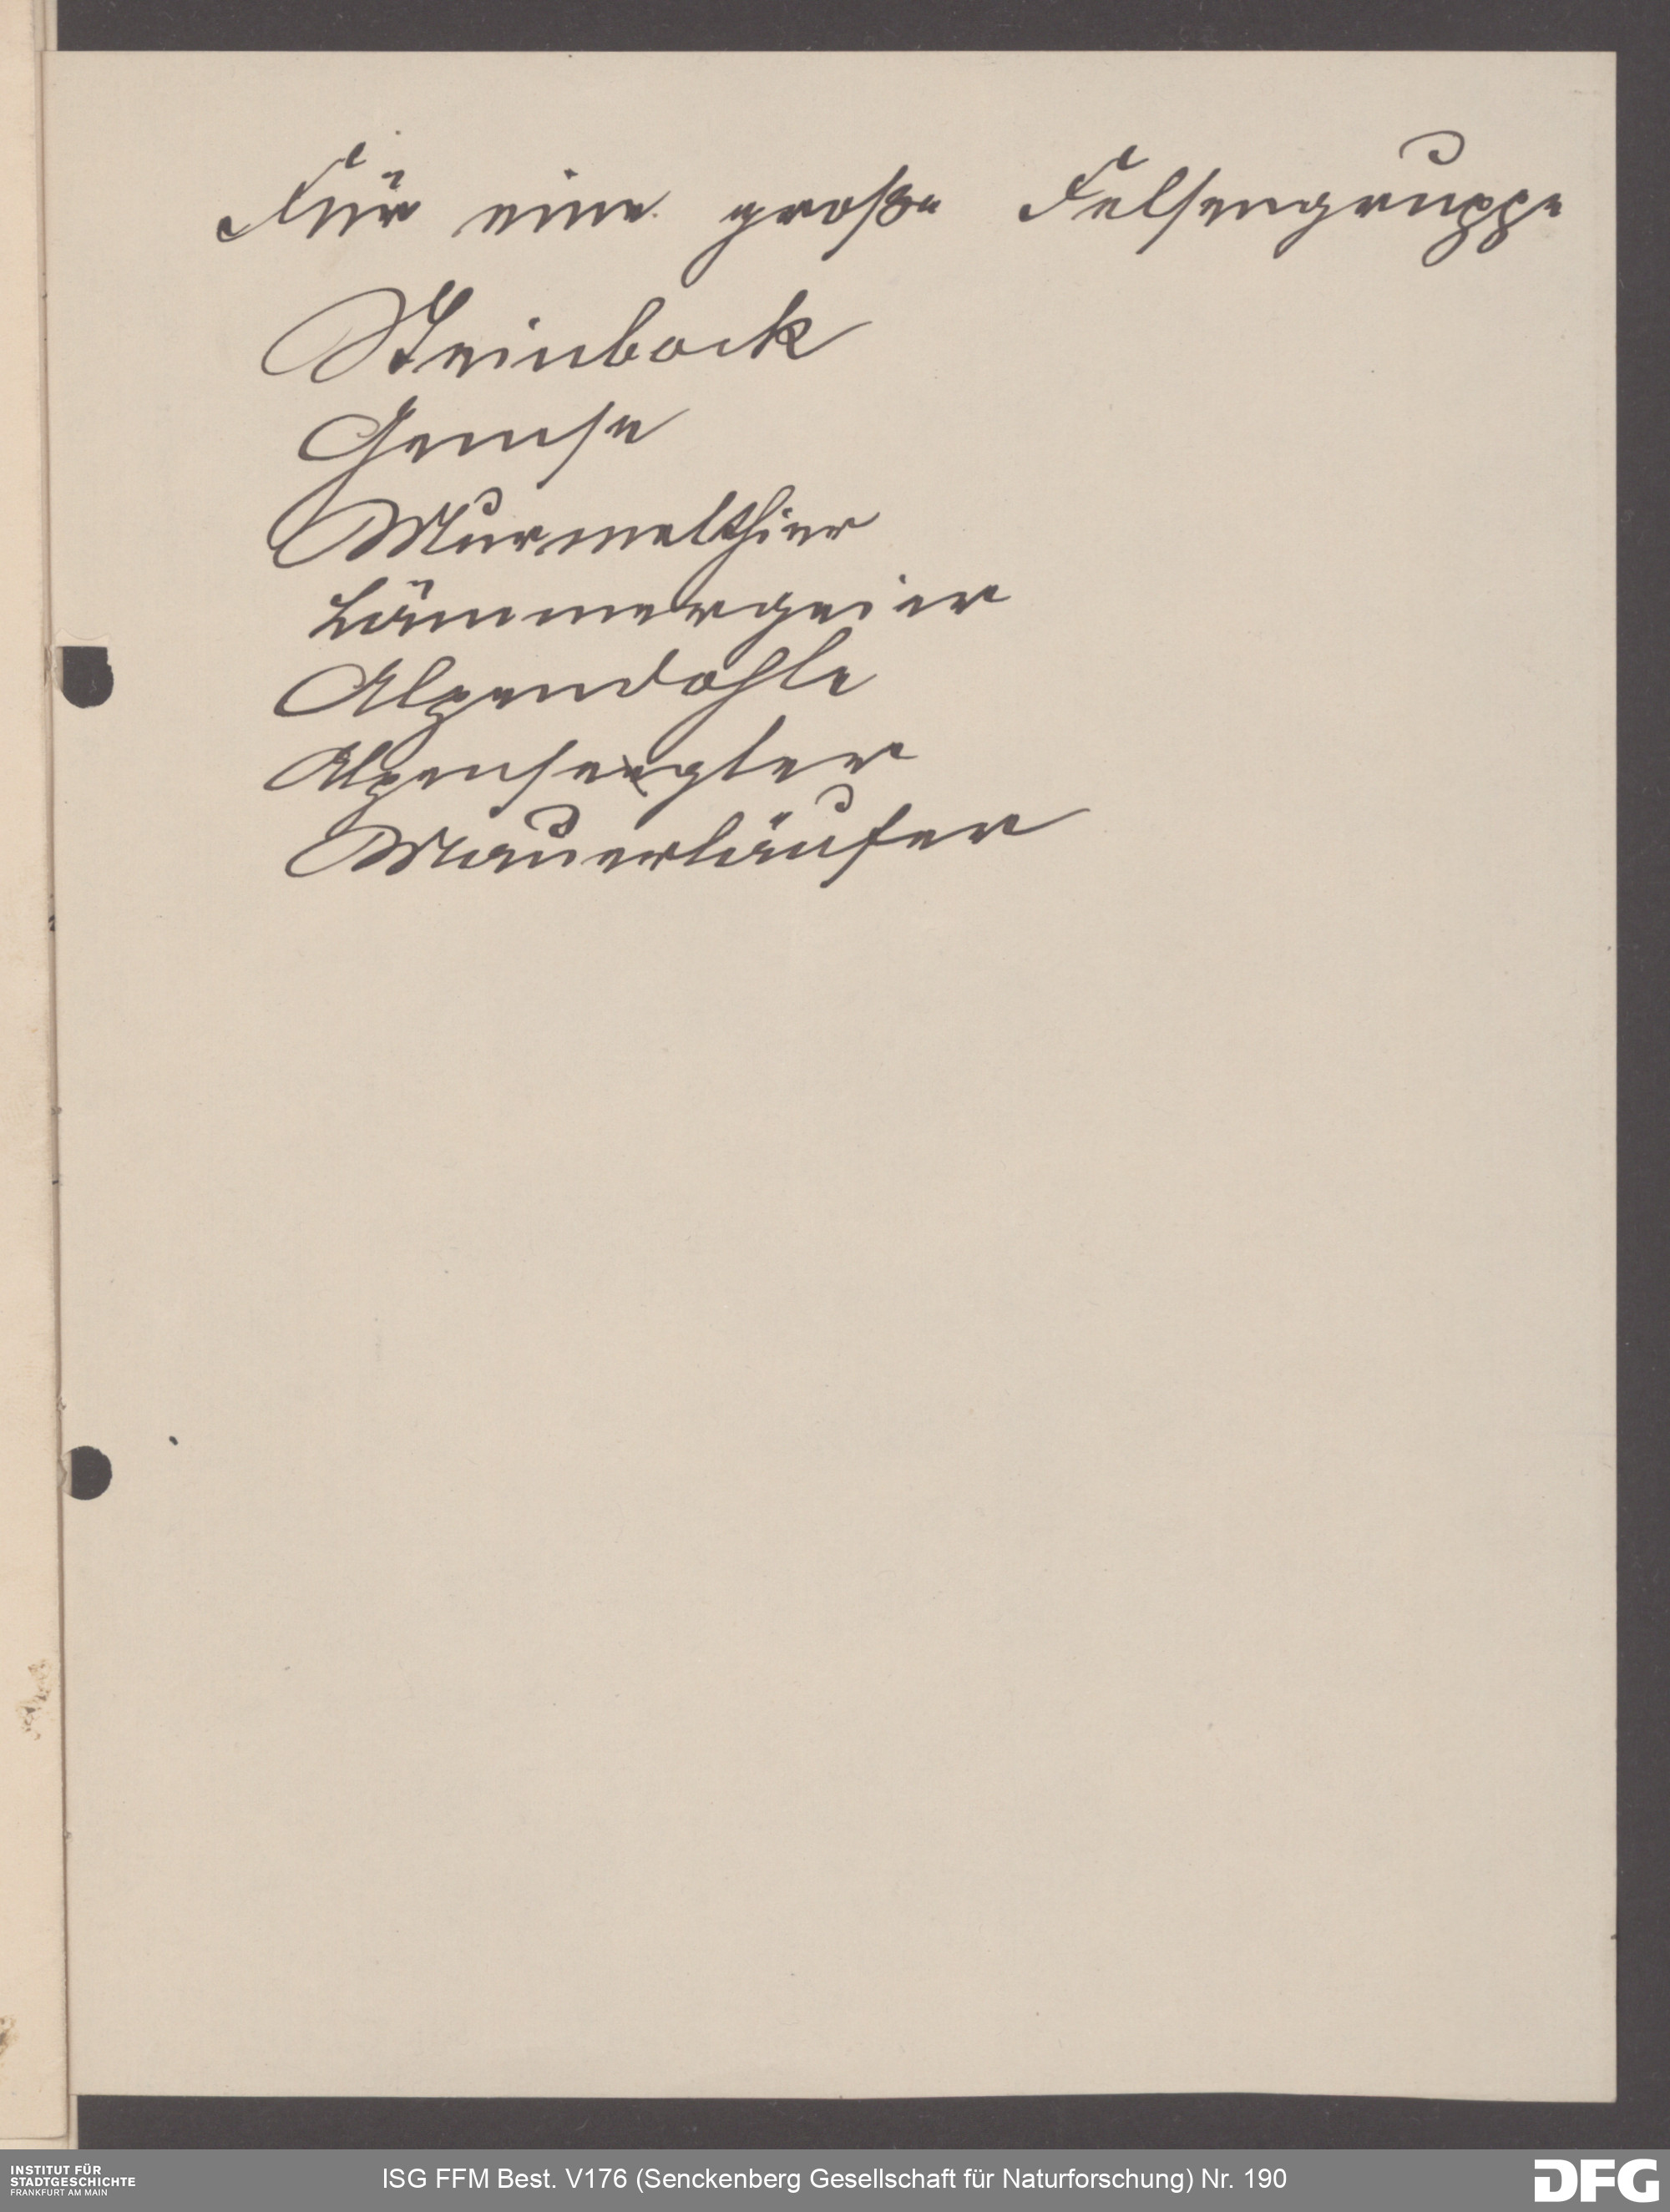 Für eine große Felsengruppe
Steinbock
Gemse
Murmelthier
Lämmergeier
Alpendohle
Alpensegler
Mauerläufer
INSTITUT FÜR
STADTGESCHICHTE
FRANKFURT AM MAIN
ISG FFM Best. V176 (Senckenberg Gesellschaft für Naturforschung) Nr. 190
DFG